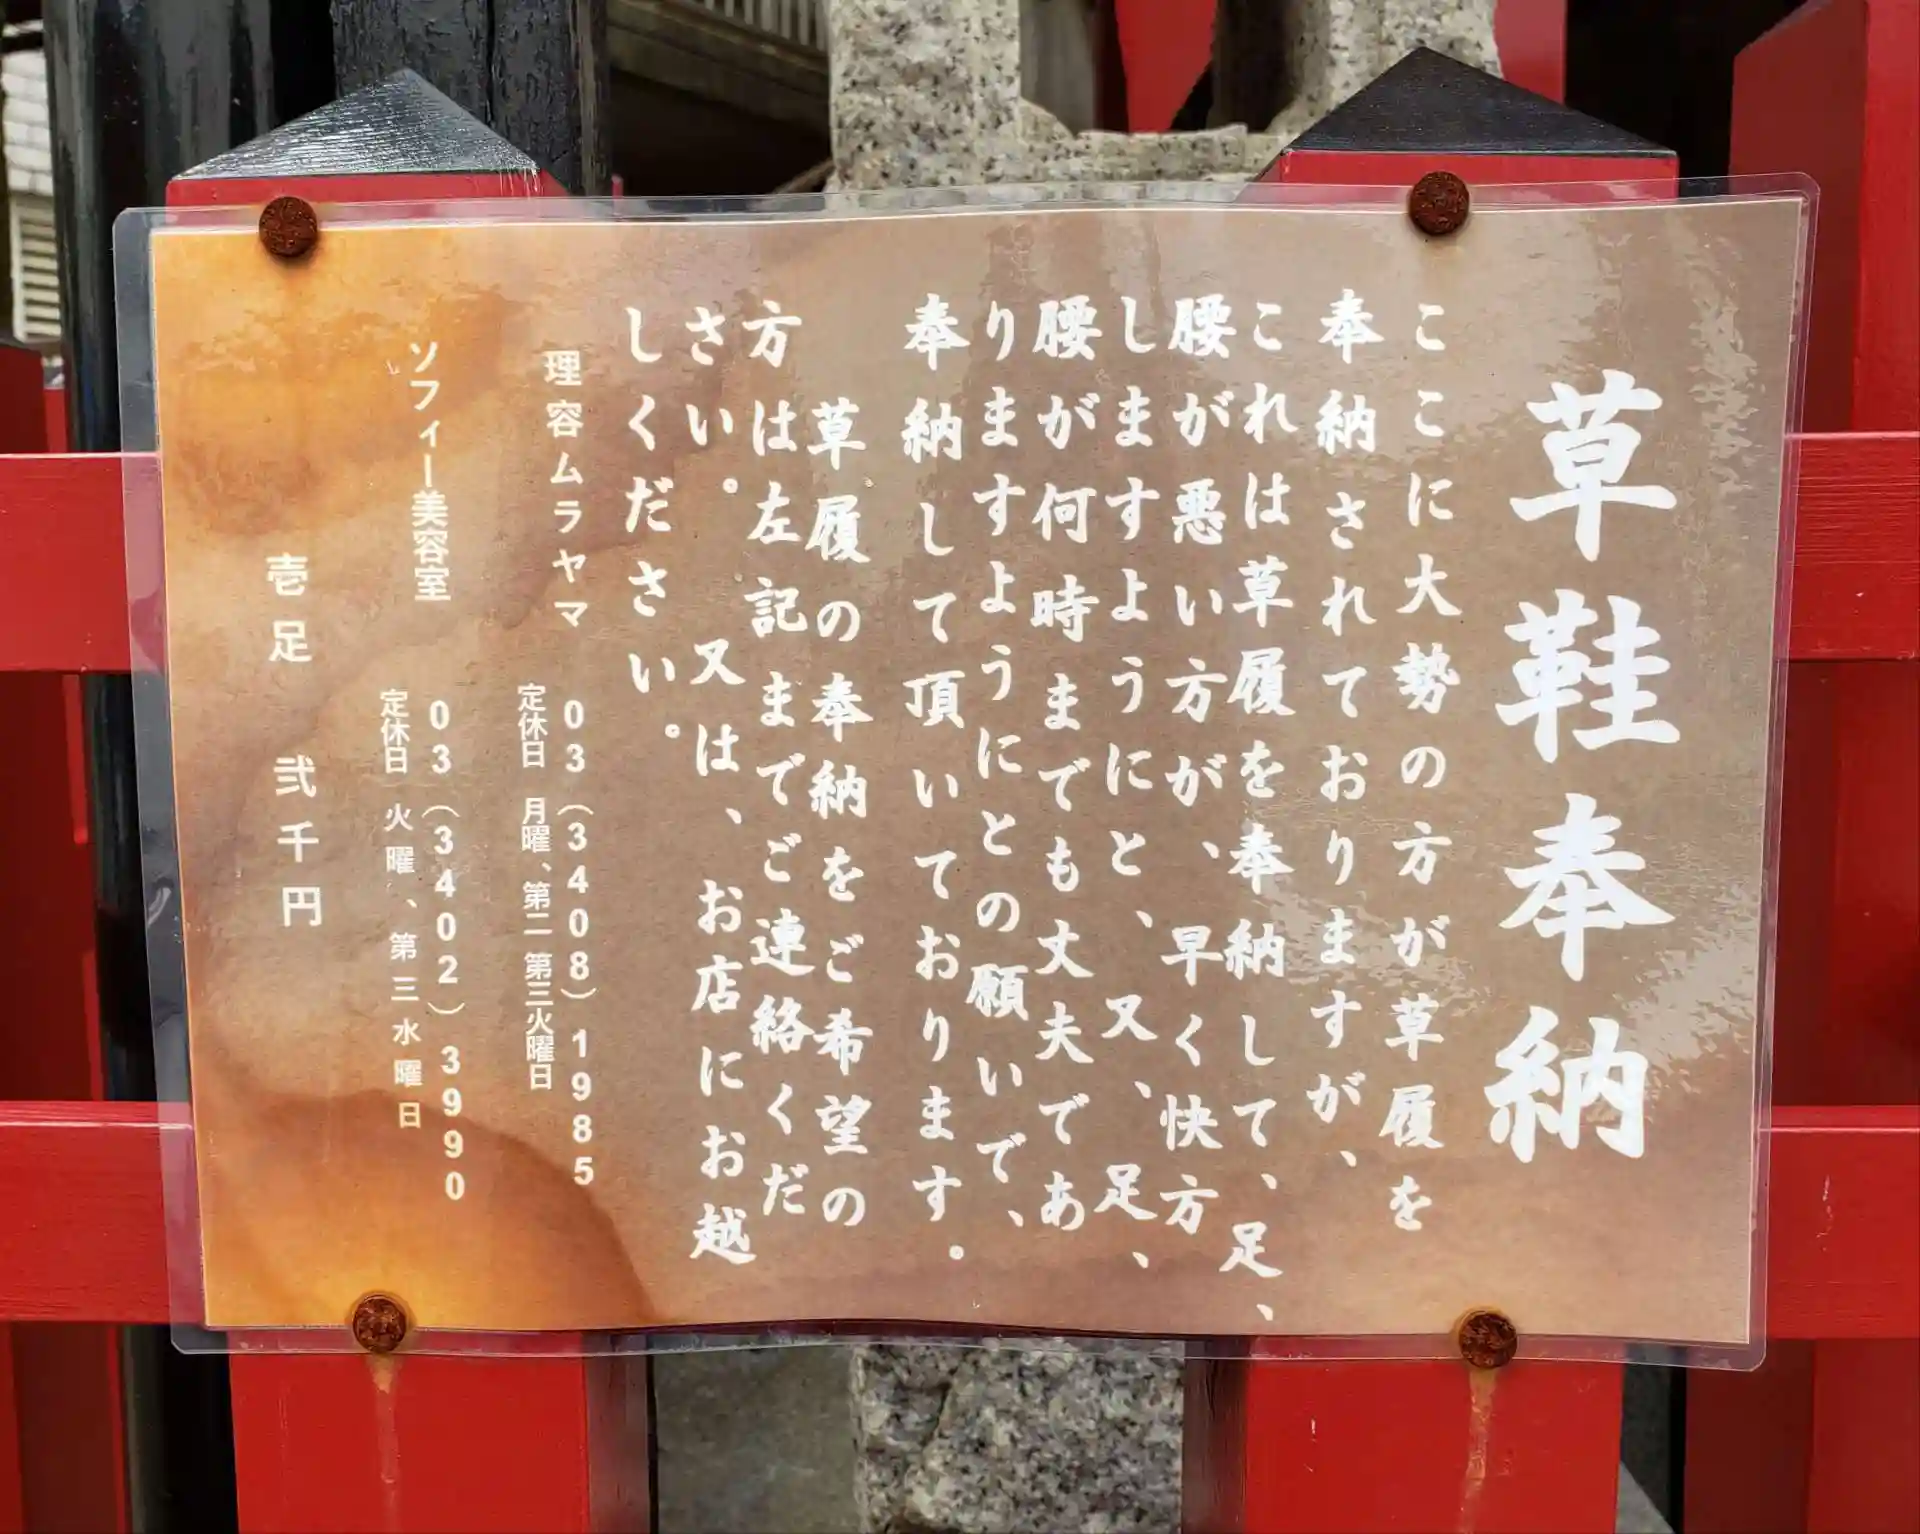 草鞋奉納
ここに大勢の方が草履を
奉納されておりますが、
これは草履を奉納して、足、
腰が悪い方が、早く快方
しますようにと、又、足、
腰が何時までも丈夫であ
りますすようにとの願いで、
奉納して頂いております。
草履の奉納をご希望の
方は左記までご連絡くだ
さい。又は、お店にお越
しください。
理容ムラヤマ 03(3408)1985
定休日 月曜、第二 第三火曜日
ソフィー美容室 03(3402)3990
定休日 火曜、第三水曜日
壱足 弐千円